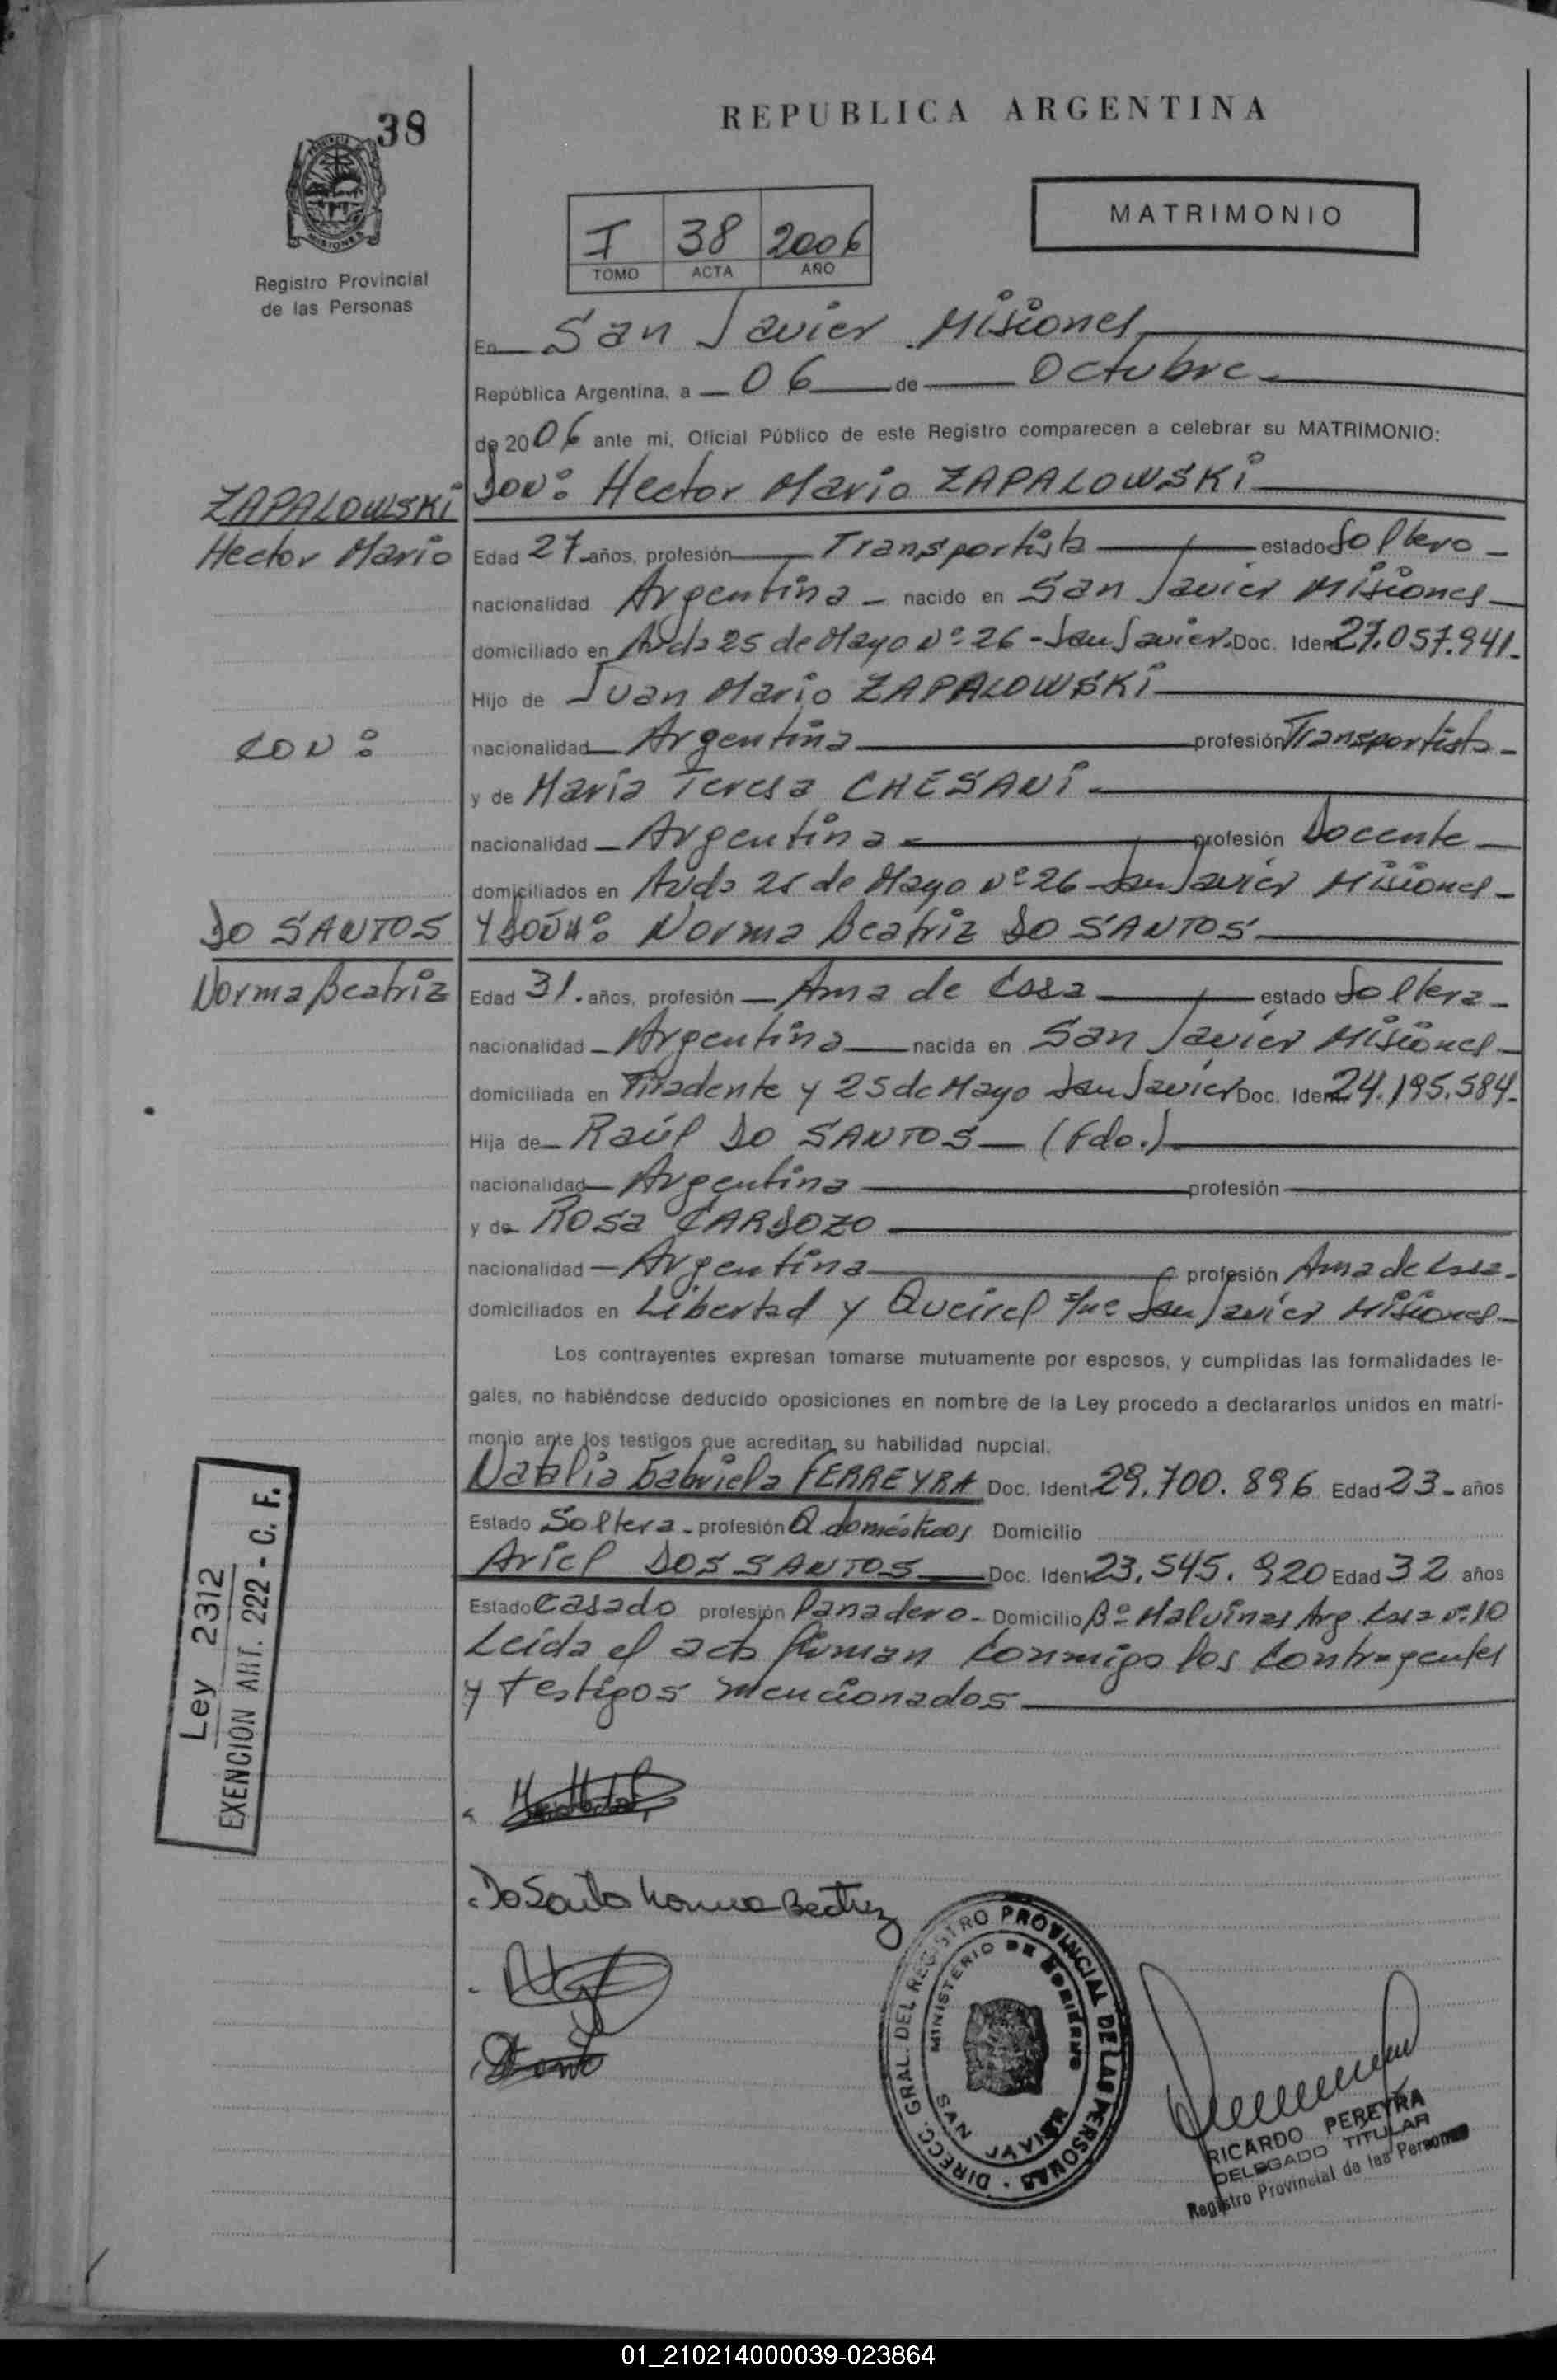 38
REPUBLICA ARGENTINA
MATRIMONIO
I 38 2006
TOMO ACTA AÑO
Registro Provincial
de las Personas
MISIONES
En San Javier Misiones
República Argentina, a 06 de Octubre
de 2006 ante mi, Oficial Público de este Registro comparecen a celebrar su MATRIMONIO:
Don: Hector Mario ZAPALOWSKI
ZAPALOWSKI
Hector Mario
Edad 27 años, profesión Transportista estado Soltero
nacionalidad Argentina nacido en San Javier Misiones
domiciliado en Avda 25 de Mayo Nº 26 - San Javier. Doc. Iden 27.057.941.
Hijo de Juan Mario ZAPALOWSKI
CON:
nacionalidad Argentina profesión Transportista
y de Maria Teresa CHESANI
nacionalidad Argentina profesión Docente
domiciliados en Avda 25 de Mayo Nº 26 San Javier Misiones
DO SANTOS
Norma Beatriz
Y DOÑA: Norma Beatriz DO SANTOS
Edad 31. años, profesión Ama de Casa estado Soltera
nacionalidad Argentina nacida en San Javier Misiones
domiciliada en Tiradente y 25 de Mayo San Javier Doc. Iden 24.195.584.
Hija de Raúl DO SANTOS (Fdo.)
nacionalidad Argentina profesión
y de Rosa CARDOZO
nacionalidad Argentina profesión Ama de Casa
domiciliados en Libertad y Queirel San Javier Misiones
Los contrayentes expresan tomarse mutuamente por esposos, y cumplidas las formalidades le-
gales, no habiéndose deducido oposiciones en nombre de la Ley procedo a declararlos unidos en matri-
monio ante los testigos que acreditan su habilidad nupcial.
Natalia Gabriela FERREYRA Doc. Ident 29.700.896 Edad 23 años
Estado Soltera profesión Q domésticos Domicilio
Ariel DOS SANTOS Doc. Ident 23.545.920 Edad 32 años
Estado Casado profesión Panadero Domicilio Bº Malvinas Arg. Casa nº 10
Leida el acta firman conmigo los contrayentes
y testigos mencionados
Ley 2312
EXENCION ART. 222 - C. F.
Do Santo Norma Beatriz
DIRECC. GRAL. DEL REGISTRO PROVINCIAL DE LAS PERSONAS
MINISTERIO DE GOBIERNO
SAN JAVIER
RICARDO PEREYRA
DELEGADO TITULAR
Registro Provincial de las Personas
01_210214000039-023864